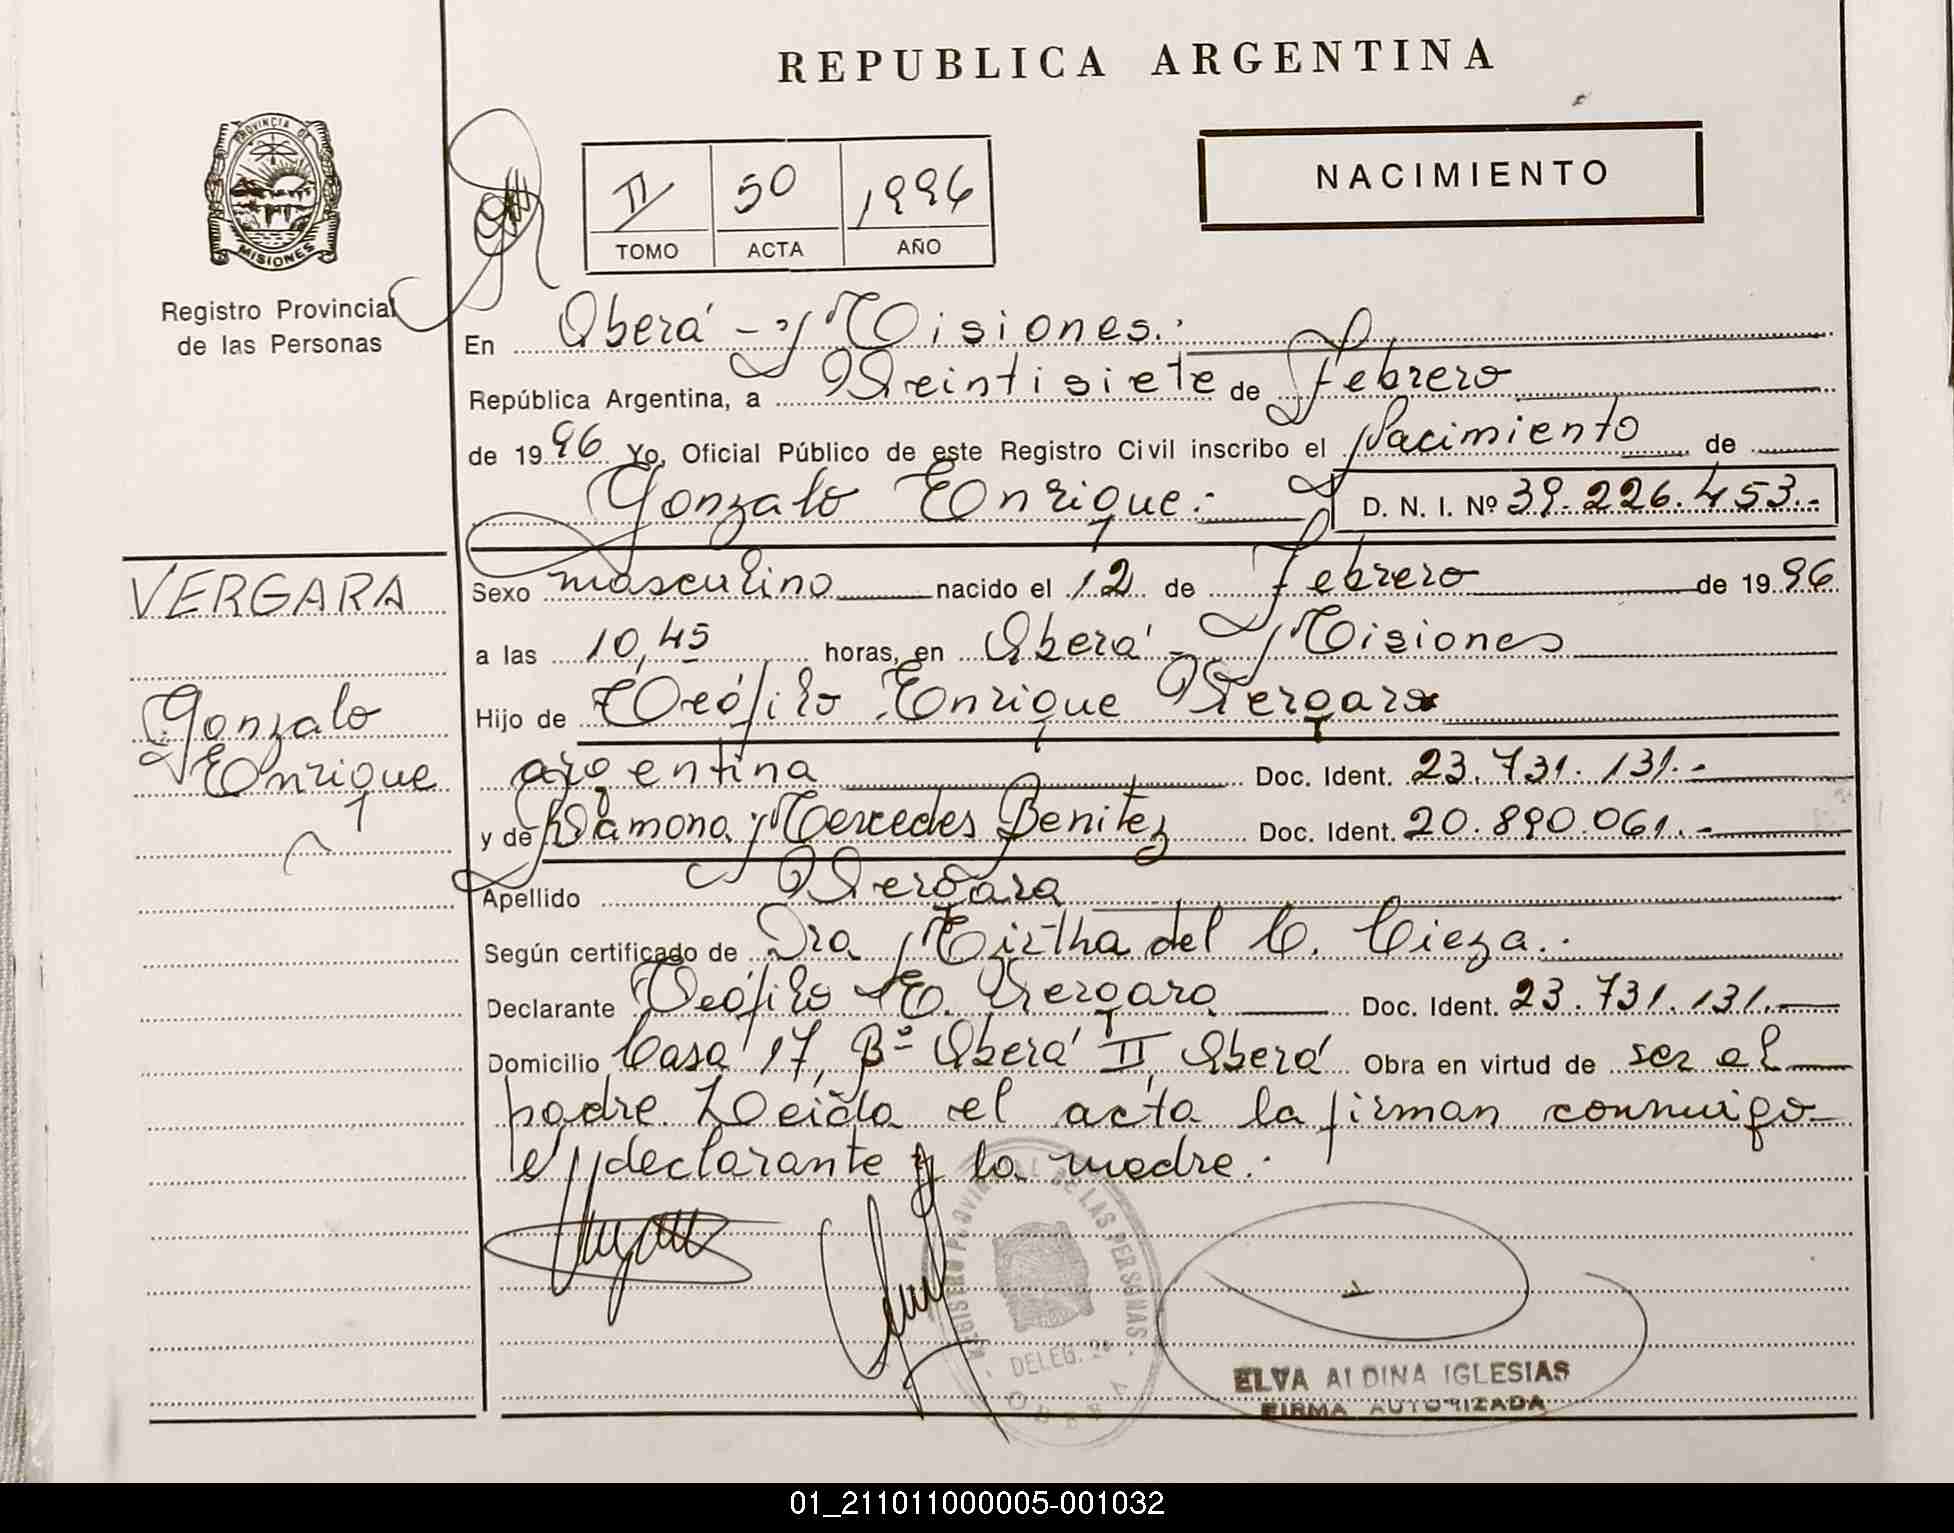 REPUBLICA ARGENTINA
PROVINCIA DE
MISIONES
Registro Provincial
de las Personas
II 50 1996
TOMO ACTA AÑO
NACIMIENTO
En Oberá - Misiones.
República Argentina, a Veintisiete de Febrero
de 1996 Yo, Oficial Público de este Registro Civil inscribo el Nacimiento de
Gonzalo Enrique. D. N. I. Nº 39.226.453.-
VERGARA
Gonzalo
Enrique
Sexo masculino nacido el 12 de Febrero de 1996
a las 10,45 horas, en Oberá - Misiones
Hijo de Teófilo Enrique Vergara
argentina Doc. Ident. 23.731.131.-
y de Ramona Mercedes Benitez Doc. Ident. 20.890.061.-
Apellido Vergara
Según certificado de Dra Mirtha del C. Cieza.
Declarante Teófilo E. Vergara Doc. Ident. 23.731.131.-
Domicilio Casa 17, Bº Oberá II, Oberá Obra en virtud de ser el
padre. Leida el acta la firman conmigo
el declarante y la madre.
REGISTRO PROVINCIAL DE LAS PERSONAS
DELEG.
OBERA
ELVA ALDINA IGLESIAS
FIRMA AUTORIZADA
01_211011000005-001032